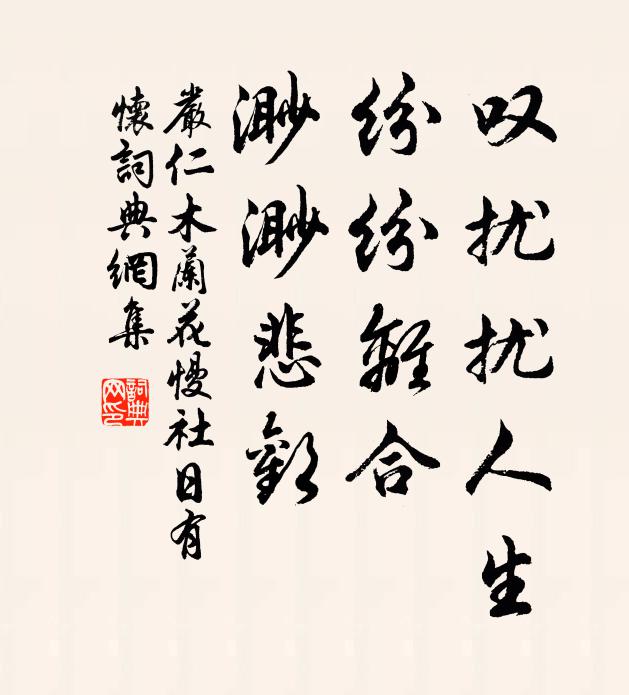 叹扰扰人生
纷纷離合
渺渺悲歡
嚴仁木蘭花慢社日有
懷詞典網集
詞典
网印